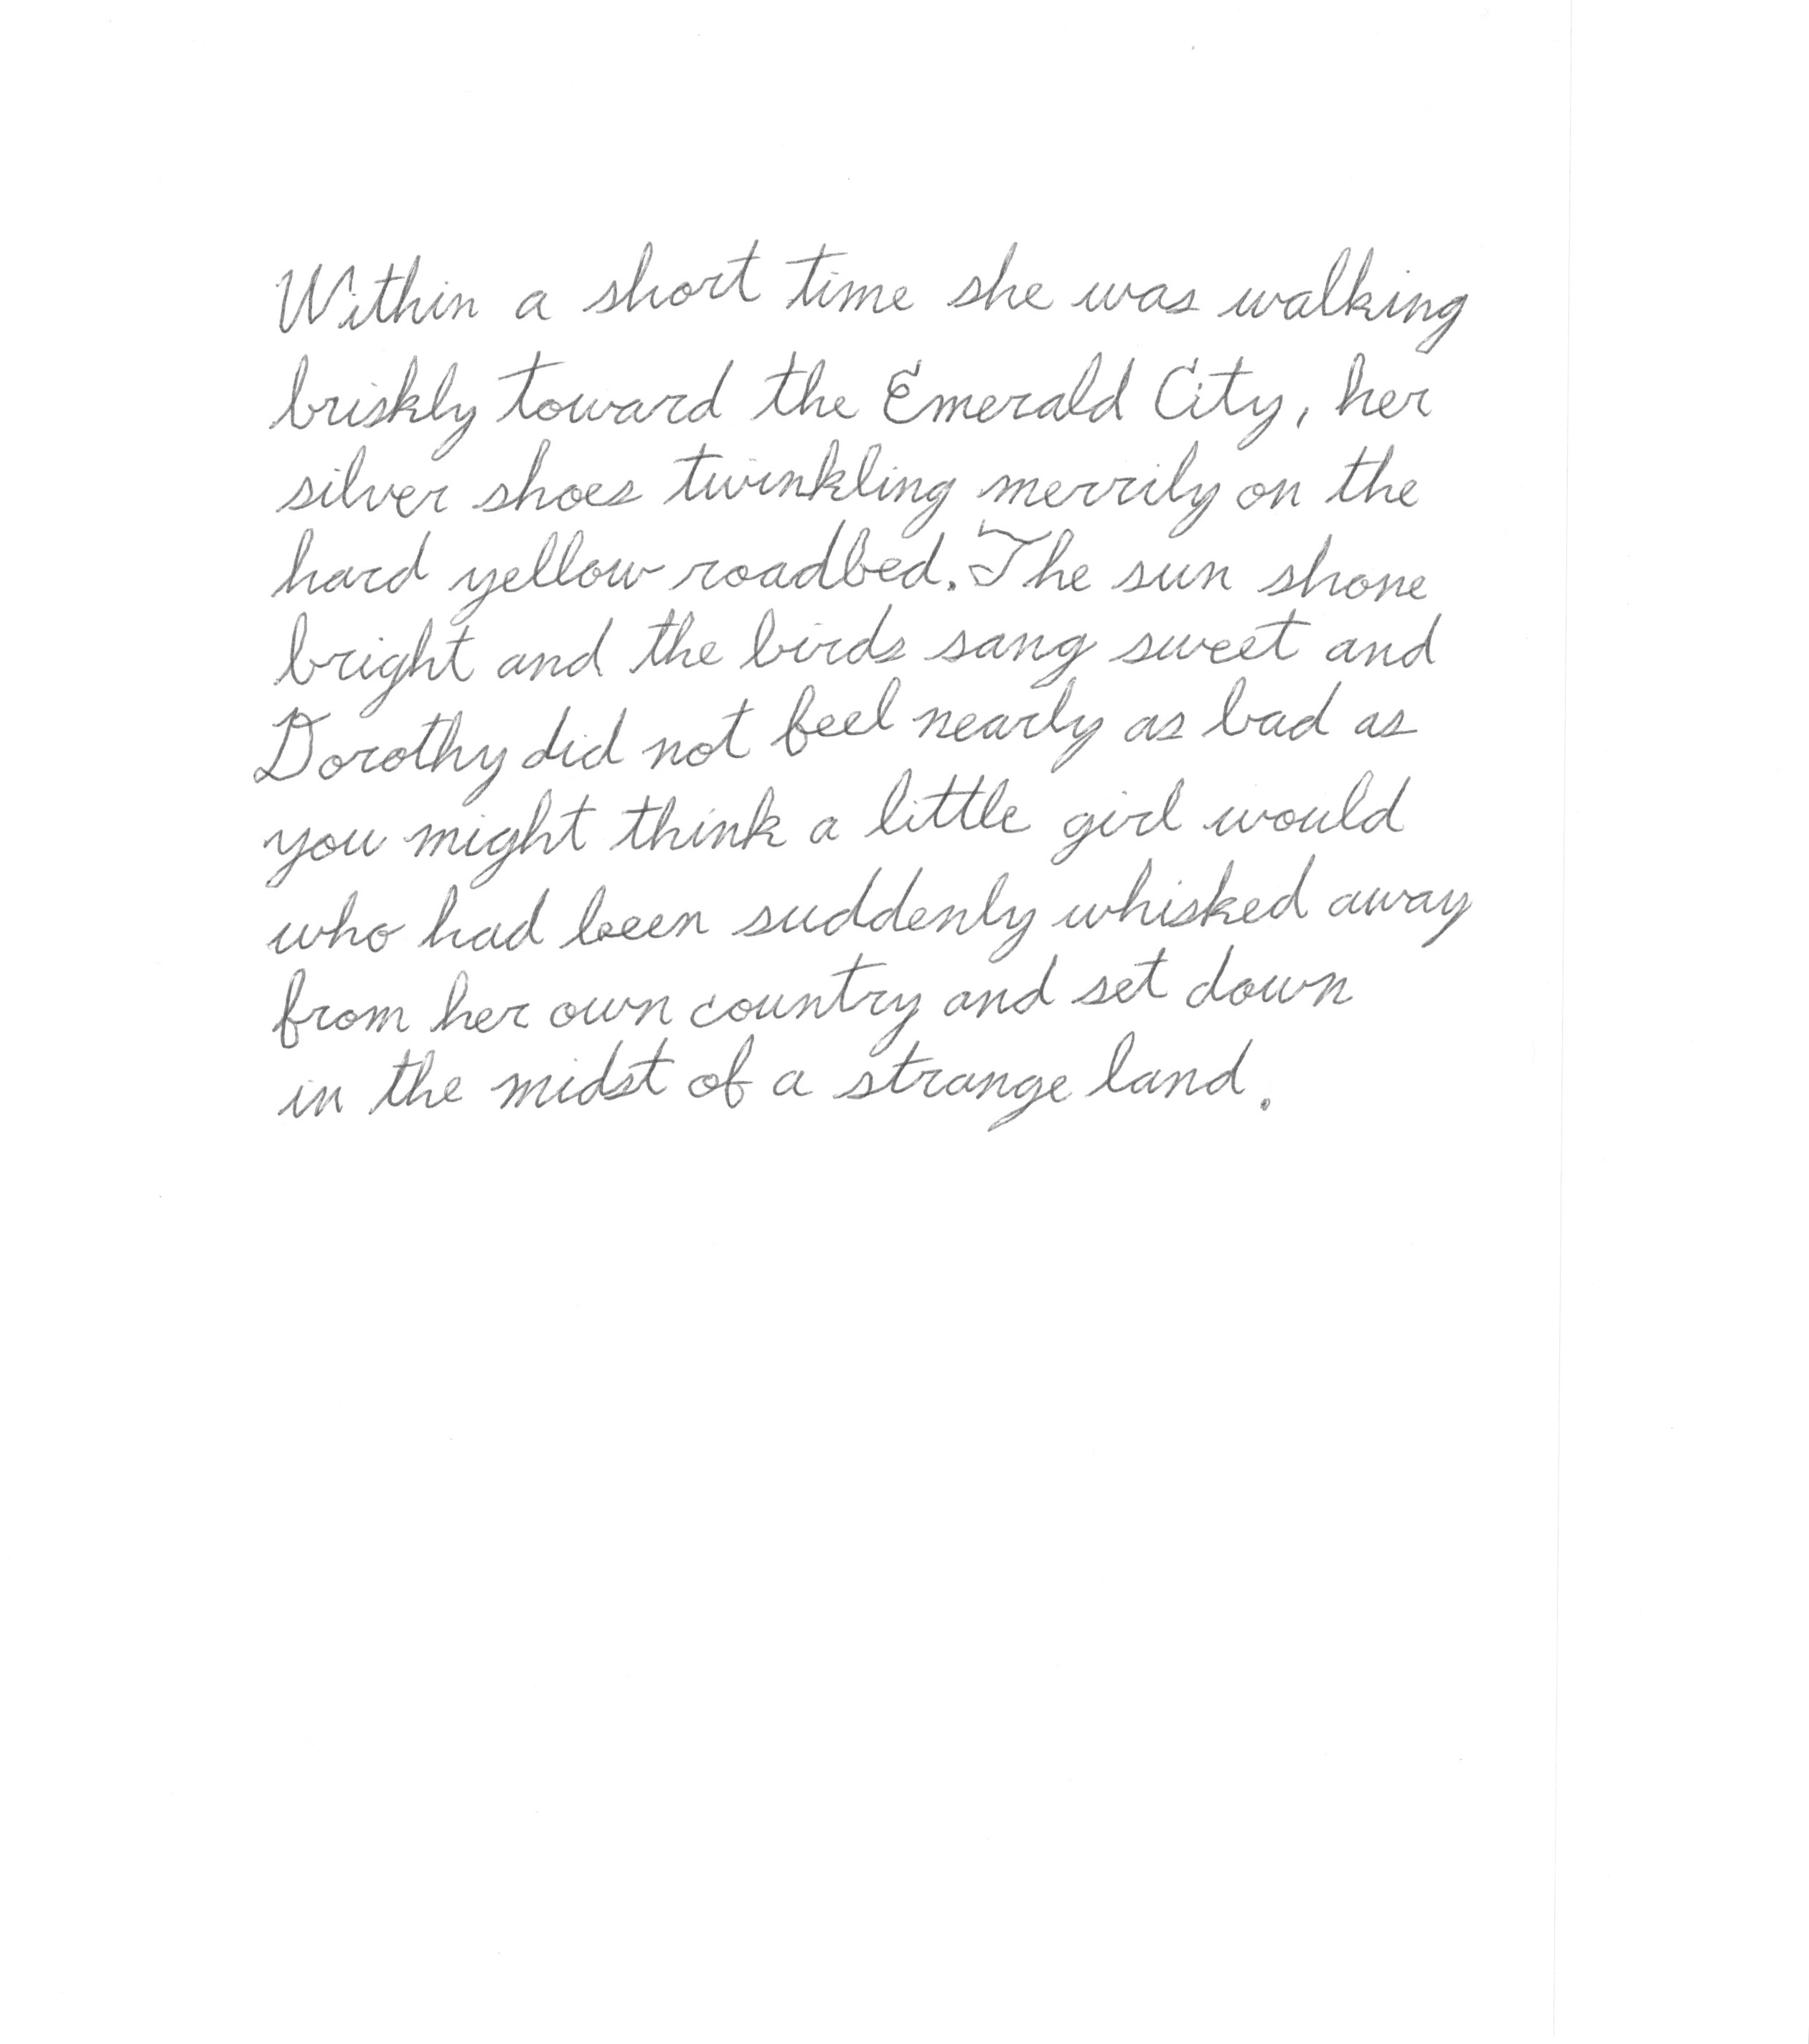 Within a short time she was walking
briskly toward the Emerald City, her
silver shoes twinkling merrily on the
hard yellow roadbed. The sun shone
bright and the birds sang sweet and
Dorothy did not feel nearly as bad as
you might think a little girl would
who had been suddenly whisked away
from her own country and set down
in the midst of a strange land.